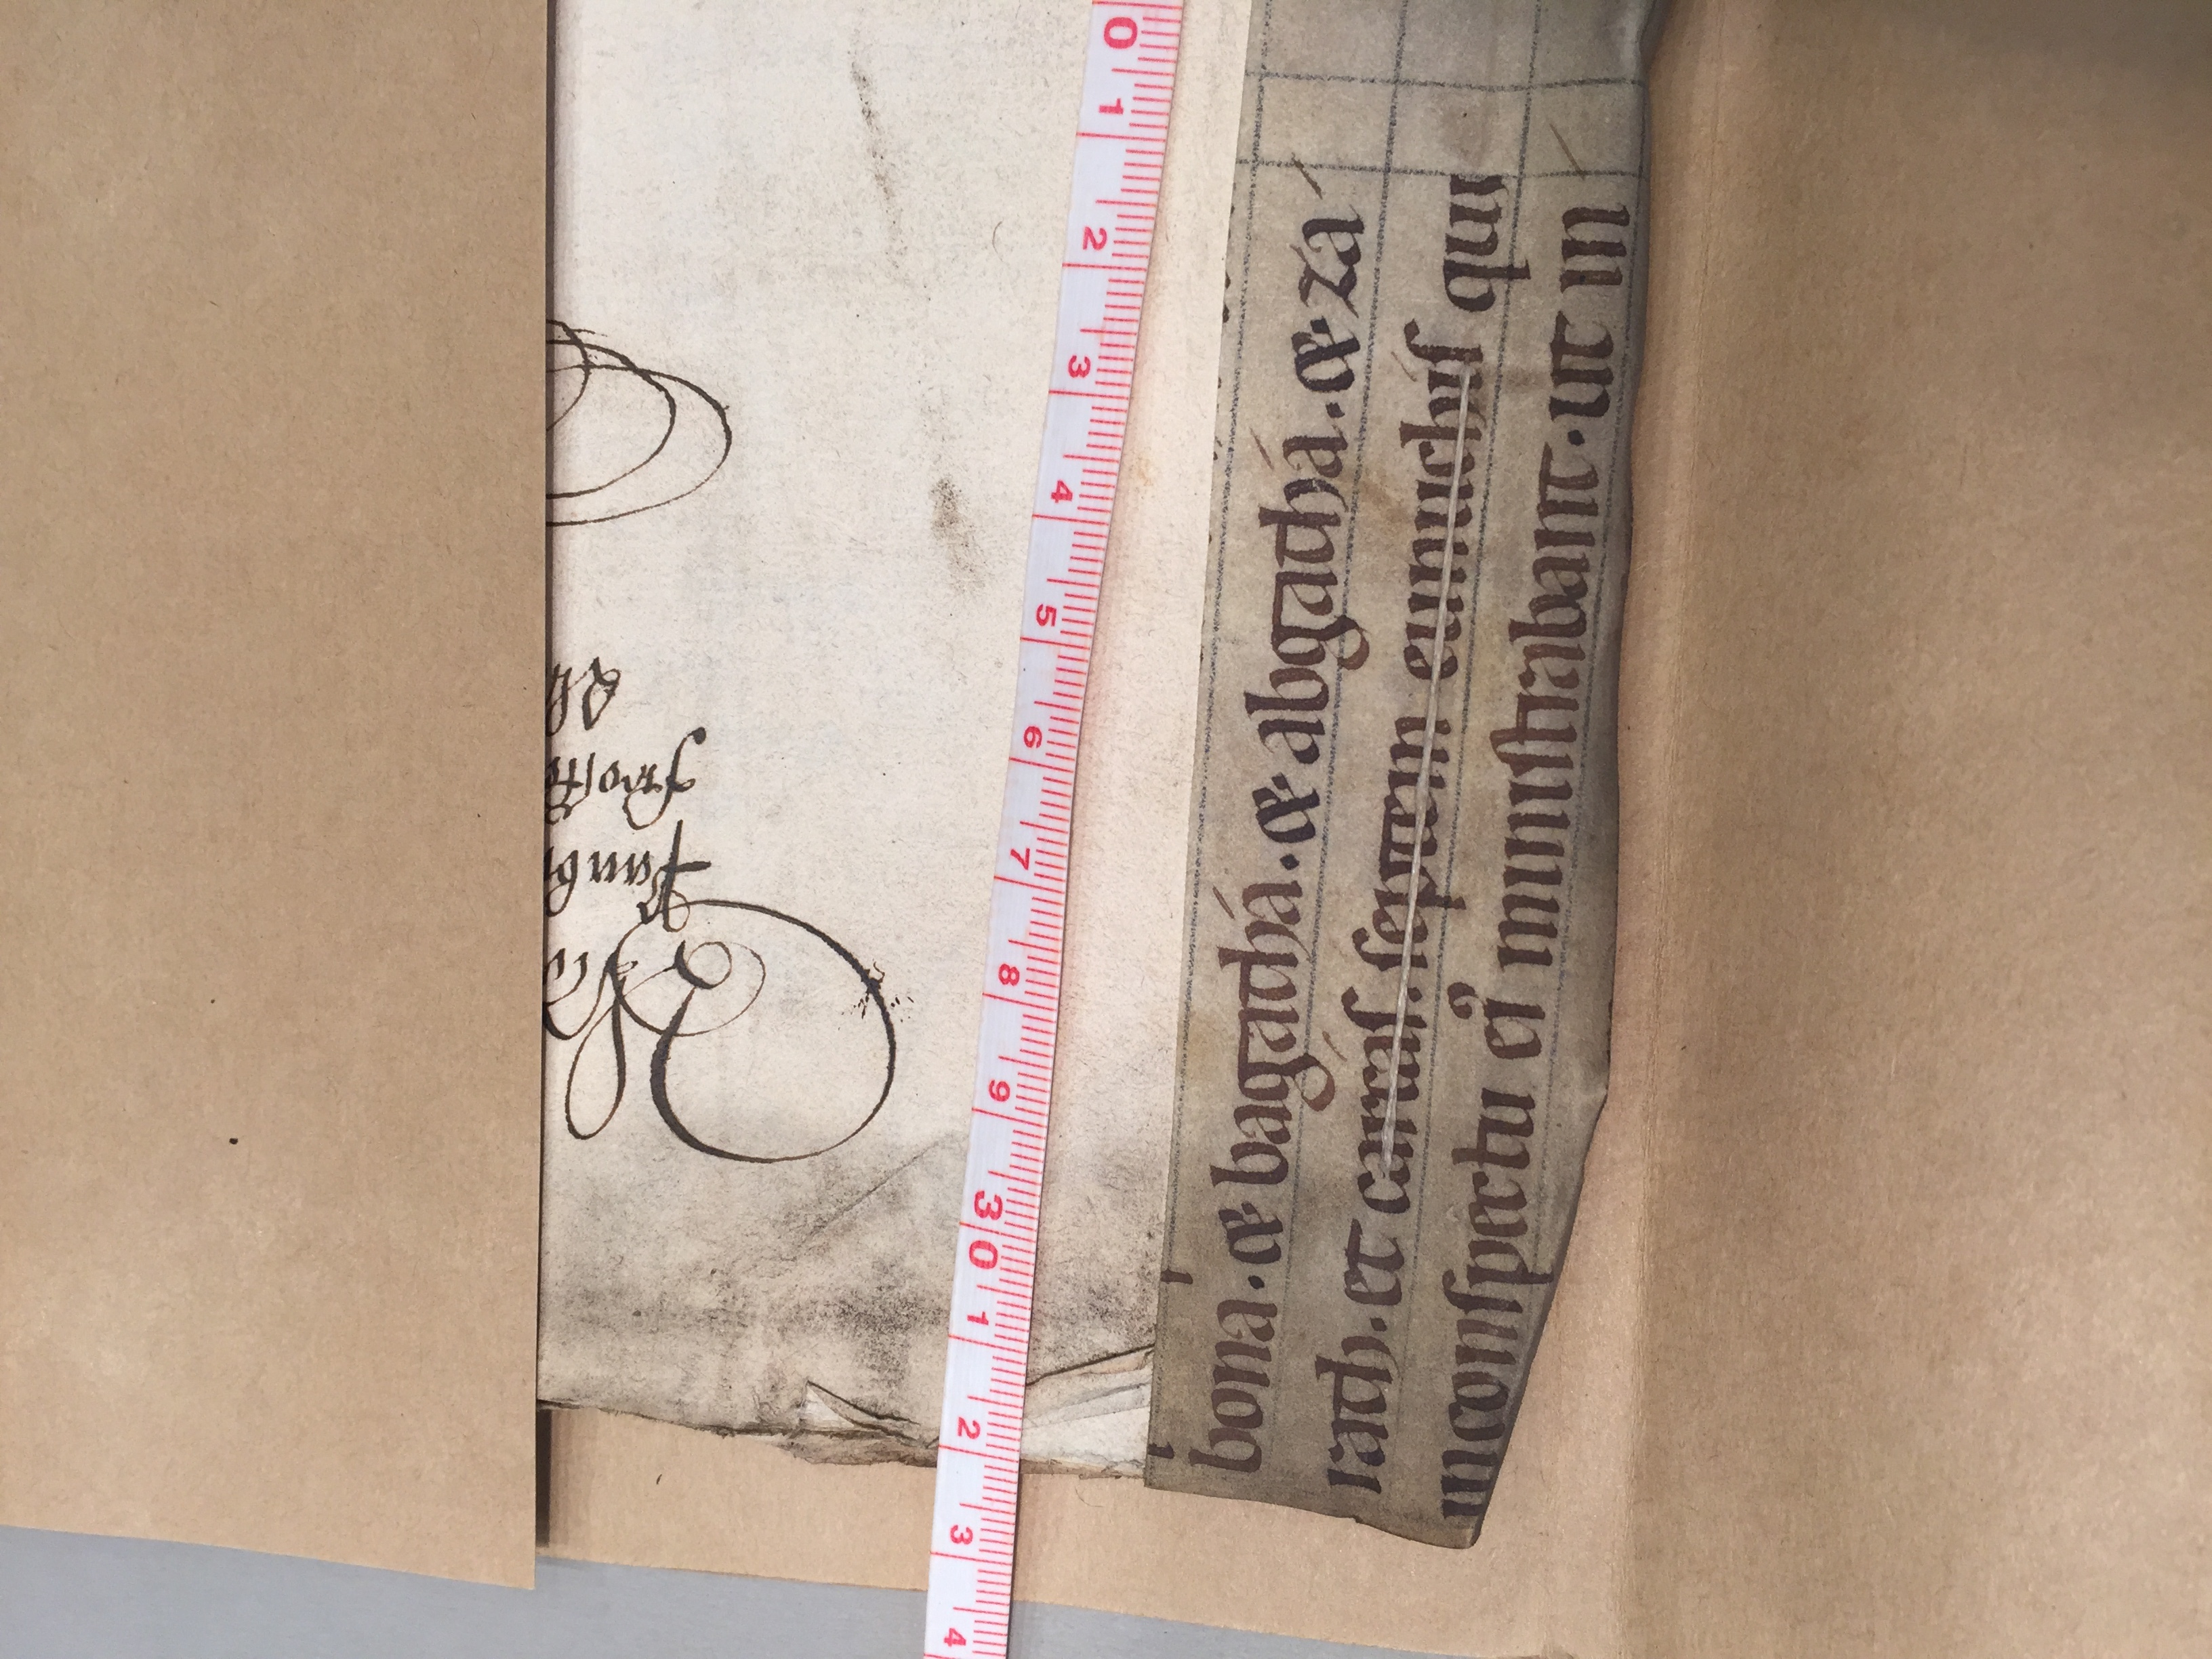 4 3 2 1 0 3 9 8 7 6 5 4 3 2 1 0
bona. & bagathá. & abgathá. & za
rath. et carcás. septem eunuchis qui
inconspectu ei᾽ ministrabant. ut in